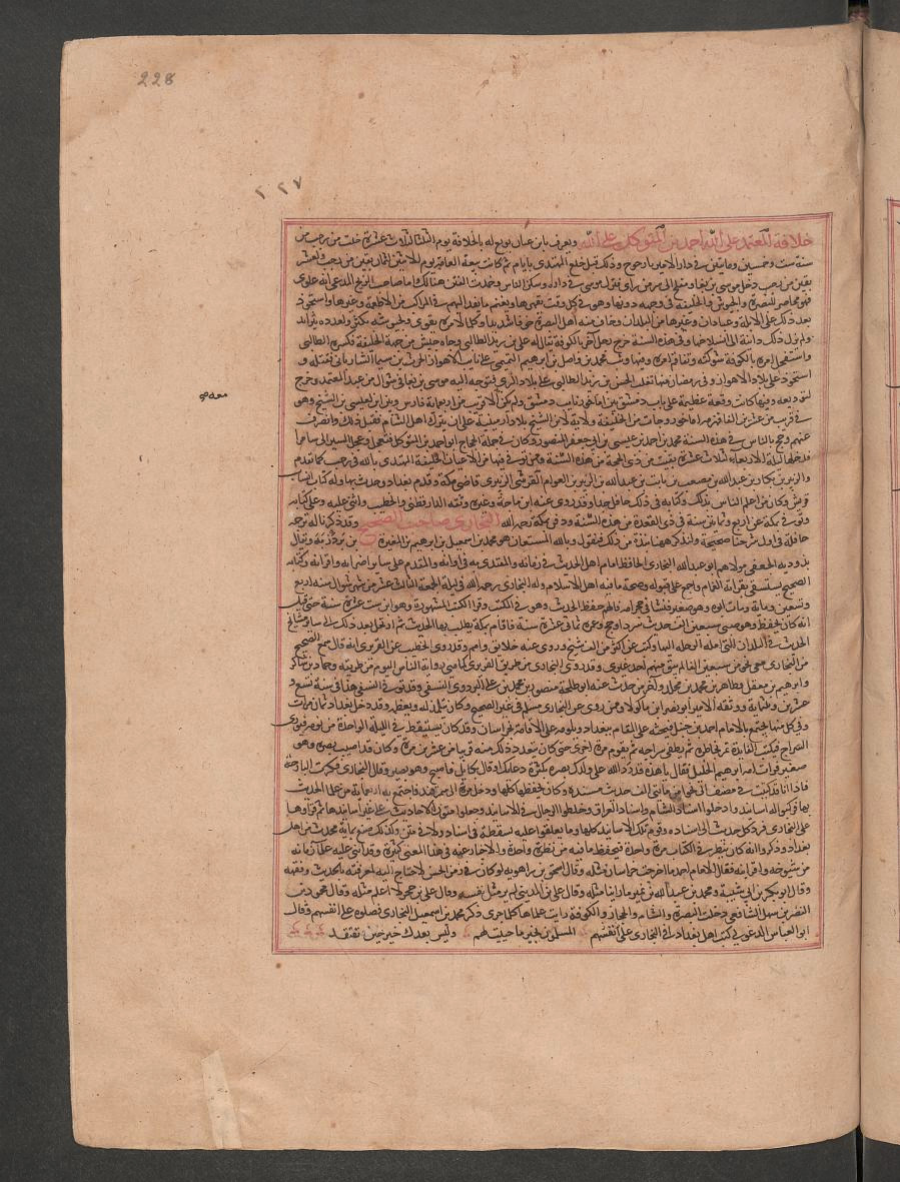 228
٢٢٧
خلافة المعتمد على الله احمد بن المتوكل على الله ويعرف بابن فتيان بويع له بالخلافة يوم الثلثا لثلاث عشرة خلت من رجب من
سنة ست وخمسين ومايتين في دار الامير يارجوخ وذلك قبل خلع المهتدى بايام ثم كانت بيعة العامة يوم الاثنين لثمان بقين من رجب
بقين من رجب دخل موسى بن بغا ومفلح الى سر من راى فنزل موسى في داره وسكن الناس وخمدت الفتن هنالك اما صاحب الزنج المدعي انه علوى
فهو محاصر للبصرة والجيوش الخليفية في وجهه دونها وهو في كل وقت يقهرها ويغنم ما يفد اليهم في المراكب من الاطعمة وغيرها واستحوذ
بعد ذلك على الابلة وعبادان وغيرها من البلدان وخاف منه اهل البصرة خوفا شديدا وكل امره يقوى وجيوشه تكثر وعدده يتزايد
ولم يزل ذلك دابه الى انسلاخها وفى هذه السنة خرج رجل آخر بالكوفة يقال له على بن زيد الطالبي وجاه جيش من جهة الخليفة فكسره الطالبي
واستفحل امره بالكوفة وقويت شوكته وتفاقم امره وفيها وثب محمد بن واصل بن ابرهيم التميمي على نايب الاهواز الحرث بن سيما الشارباني فقتله و
استحوذ على بلاد الاهواز وفى رمضان منها تغلب الحسن بن زيد الطالبي على بلاد الرى فتوجه اليه موسى بن بغا في شوال من عند المعتمد وخرج
لتوديعه وفيها كانت وقعة عظيمة على باب دمشق بين اماجور نايب دمشق ولم يكن الا قريب من اربعماية فارس وبين ابن لعيسى بن الشيخ وهو
في قريب من عشرين الفا فهزمه اماجور وجات من الخليفة ولاية لابن الشيخ بلاد ارمينية على ان يترك اهل الشام فقبل ذلك وانصرف
عنهم وحج بالناس في هذه السنة محمد بن احمد بن عيسى بن ابى جعفر المنصور وكان في جملة الحجاج ابو احمد بن المتوكل فتعجل وعجل السير الى سامرا
فدخلها ليلة الاربعاء لثلاث عشرة بقيت من ذى الحجة من هذه السنة وممن توفي فيها من الاعيان الخليفة المهتدى بالله في رجب كما تقدم
والزبير بن بكار بن عبد الله بن مصعب بن ثابت بن عبد الله بن الزبير بن العوام القرشي الزبيرى قاضي مكة وقدم بغداد وحدث بها وله كتاب انساب
قريش وكان من اعلم الناس بذلك وكتابه في ذلك حافل جدا وقد روى عنه ابن ماجة وغيره ووثقه الدارقطني والخطيب واثنى عليه وعلى كتابه
وتوفى بمكة عن اربع وثمانين سنة في ذى القعدة من هذه السنة ودفن بمكة رحمه الله البخارى صاحب الصحيح وقد ذكرنا له ترجمة
حافلة في اول شرحنا صحيحه ولنذكر ههنا نبذة من ذلك فنقول وبالله المستعان هو محمد بن اسمعيل بن ابرهيم بن المغيرة بن بردزبه ويقال
بذدزبه الجعفي مولاهم ابو عبد الله البخارى الحافظ امام اهل الحديث في زمانه والمقتدى به في اوانه والمقدم على ساير اضرابه واقرانه وكتابه
الصحيح يستسقى بقراءته الغمام واجمع على قبوله وصحة ما فيه اهل الاسلام ولد البخارى رحمه الله في ليلة الجمعة الثالث عشر من شهر شوال سنة اربع
وتسعين وماية ومات ابوه وهو صغير فنشا في حجر امه فالهم حفظ الحديث وهو في المكتب وقرا الكتب المشهورة وهو ابن ست عشرة سنة حتى قيل
انه كان يحفظ وهو صبي سبعين الف حديث سردا وحج وعمره ثماني عشرة سنة فاقام بمكة يطلب بها الحديث ثم ارتحل بعد ذلك الى ساير مشايخ
الحديث في البلدان التي امكنه الرحلة اليها وكتب عن اكثر من الف شيخ وروى عنه خلايق وامم وقد روى الخطيب عن الفربرى انه قال سمع الصحيح
من البخارى معي نحو من سبعين الفا لم يبق منهم احد غيرى وقد روى البخارى من طريق الفربرى كما هي رواية الناس اليوم من طريقه وحماد بن شاكر
وابرهيم بن معقل وطاهر بن محمد بن مخلد وآخر من حدث عنه ابو طلحة منصور بن محمد بن على البزدوى النسفي وقد توفى النسفي هذا في سنة تسع و
عشرين وثلثماية ووثقه الامير ابو نصر بن ماكولا وممن روى عن البخارى مسلم في غير الصحيح وكان يتلمذ له ويعظمه وقد دخل بغداد ثمان مرات
وفي كل منها يجتمع بالامام احمد بن حنبل فيحثه على المقام ببغداد ويلومه على الاقامة بخراسان وقد كان يستيقظ في الليلة الواحدة من نومه فيورى
السراج فيكتب الفايدة تمر بخاطره ثم يطفى سراجه ثم يقوم مرة اخرى حتى كان يتعدد ذلك منه قريبا من عشرين مرة وكان قد اصيب بصره وهو
صغير فرات امه ابرهيم الخليل فقال يا هذه قد رد الله على ولدك بصره بكثرة دعائك او قال بكائك فاصبح وهو بصير وقال البخارى فكرت البارحة
فاذا انا قد كتبت في مصنفاتي نحوا من مايتى الف حديث مسندة وكان يحفظها كلها ودخل مرة الى سمرقند فاجتمع به اربعماية من علما الحديث
بها فركبوا له اسانيد وادخلوا اسناد الشام في اسناد العراق وخلطوا الرجال في الاسانيد وجعلوا متون الاحاديث على غير اسانيدها ثم قراوها
على البخارى فرد كل حديث الى اسناده وقوم تلك الاسانيد كلها وما تعلقوا عليه بسقطة في اسناد ولا في متن وكذلك صنع بماية محدث من اهل
بغداد وذكروا انه كان ينظر في الكتاب مرة واحدة فيحفظ ما فيه من نظرة واحدة والاخبار عنه في هذا المعنى كثيرة وقد اثنى عليه علما زمانه
من شيوخه واقرانه فقال الامام احمد ما اخرجت خراسان مثله وقال اسحق بن راهويه لو كان في زمن الحسن لاحتاج اليه لمعرفته بالحديث وفقهه
وقال ابو بكر بن ابى شيبة ومحمد بن عبد الله بن نمير ما راينا مثله وقال على بن المديني لم ير مثل نفسه وقال على بن حجر لا اعلم مثله وقال محمود بن
النضر بن سهل الشافعي دخلت البصرة والشام والحجاز والكوفة رايت علماها كلما جرى ذكر محمد بن اسمعيل البخارى فضلوه على انفسهم وقال
ابو العباس الدعولي كتب اهل بغداد الى البخارى المسلمون بخير ما حييت لهم وليس بعدك خير حين تفتقد